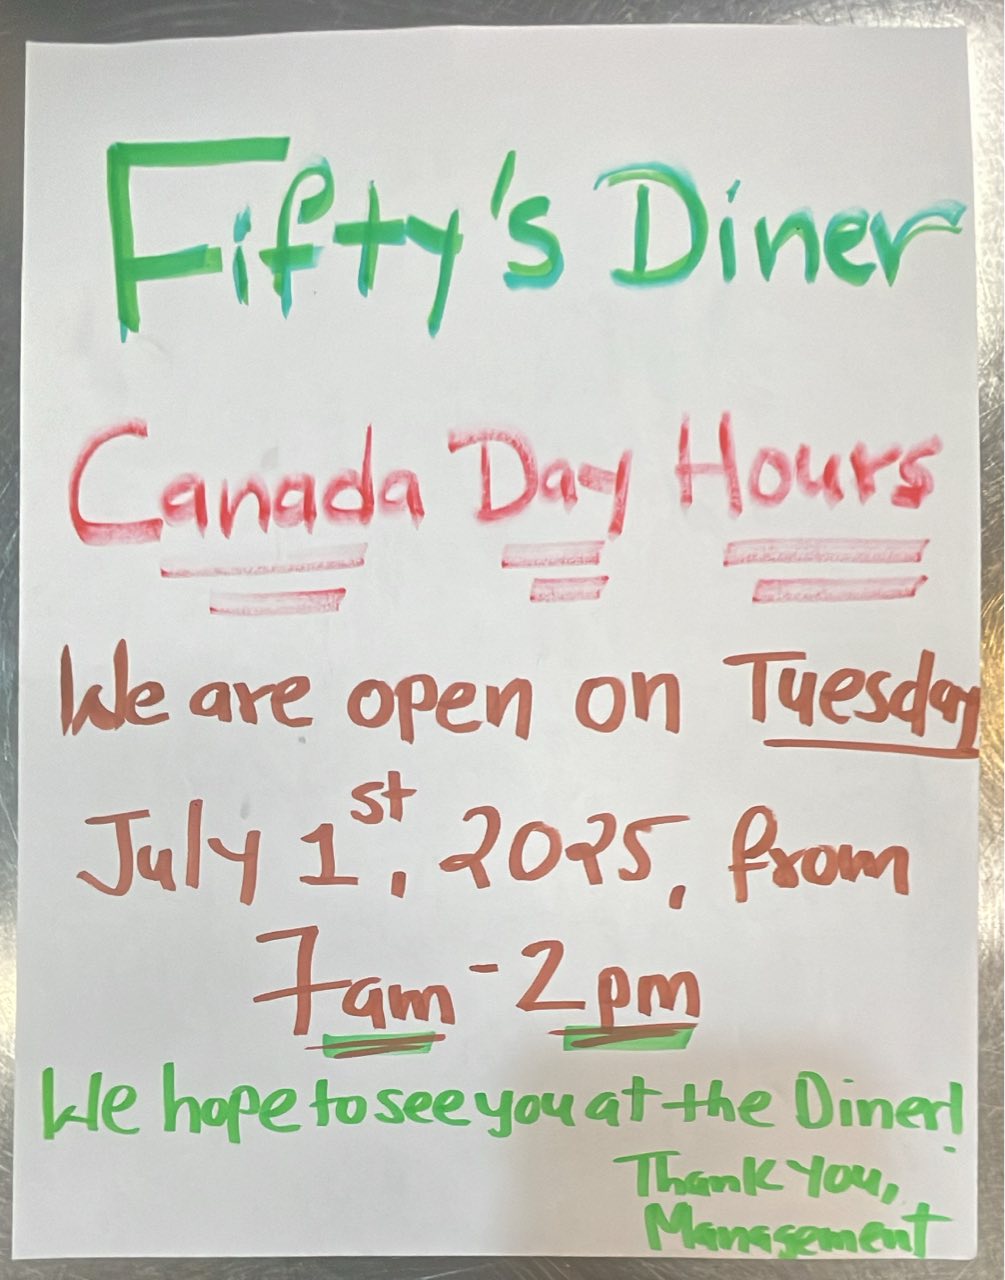 Fifty's Diner
Canada Day Hours
We are open on Tuesday
July 1st, 2025, from
7am - 2pm
We hope to see you at the Diner!
Thank You,
Management